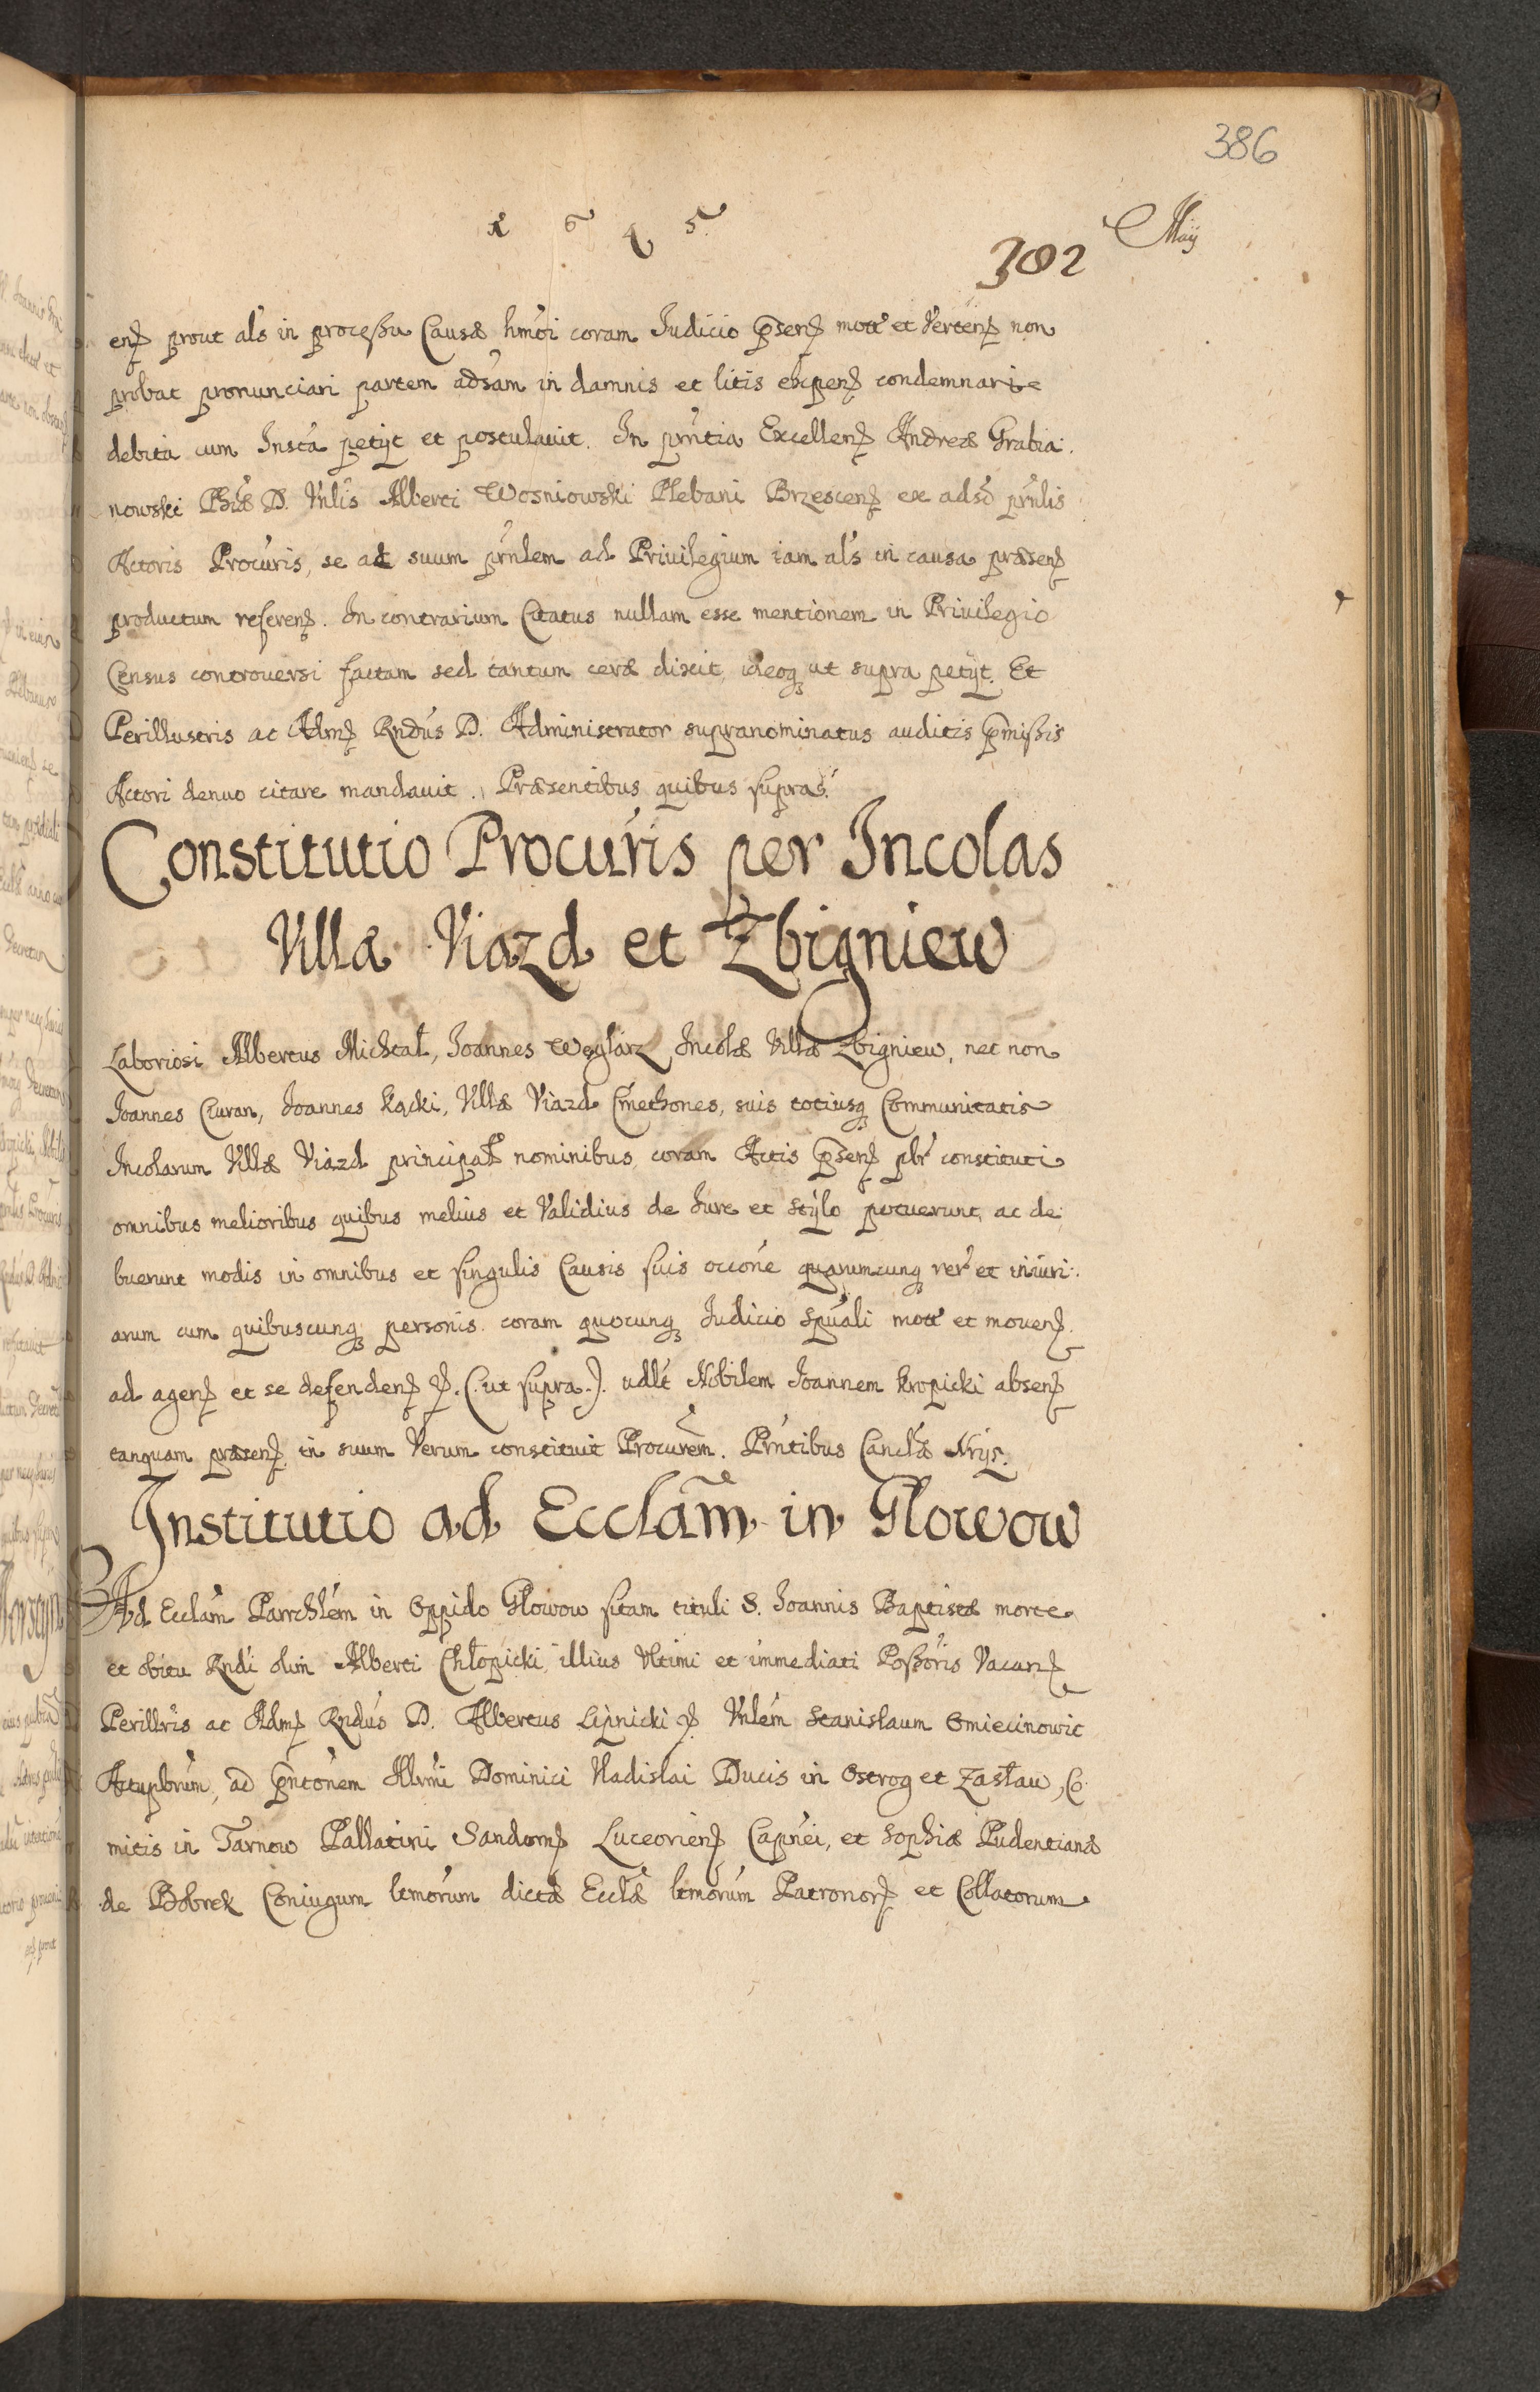 386
1 6 4 5
Maij
302
enȝ prout als in processu Causæ hmoi coram Iudicio pserȝ mott et Vertenȝ non
probat pronunciari partem adsam in damnis et litis expenȝ condemnari
debita cum Insta petijt et postulauit. In pmtia Excellenȝ Andreæ Grabia:
nowski Phiæ D. Vnlis Alberti Wosniowski Plebani Brzescenȝ ex adso prnlis
Actoris Procuris, se ad suum prnlem ad Priuilegium iam als in causa præsenȝ
productum referenȝ. In contrarium Citatus nullam esse mentionem in Priuilegio
Census controuersi factam sed tantum ceræ dixit, ideoqȝ ut supra petijt. Et
Perillustris ac Admȝ Rndus D. Administrator supranominatus auditis pmissis
Actori denuo citare mandauit. Præsentibus quibus supra.
Constitutio Procuris per Incolas
Villa Viazd et Zbigniew
Laboriosi Albertus Michał, Ioannes Węglarz Incolæ Villæ Zbigniew, nec non
Ioannes Ciuran, Ioannes Kącki, Villæ Viazd Cmethones, suis totiusqȝ Communitatis
Incolarum Villæ Viazd principał nominibus coram Actis psenȝ pbr constituti
omnibus melioribus quibus melius et Validius de Iure et stylo potuerunt ac de
buerunt modis in omnibus et singulis Causis suis occone quarumcunqȝ rer et iniuri:
arum cum quibuscunqȝ personis coram quocunqȝ Iudicio Spuali mott et mouenȝ
ad agenȝ et se defendenȝ (: ut supra :) vdlt Nobilem Ioannem Kropicki absenȝ
tanquam præsenȝ in suum Verum constituit Procurem. Prntibus Canclæ Nrijs.
Institutio ad Ecclam in Glowow
Ad Ecclam Parrchlem in Oppido Glowow sitam tituli S. Ioannis Baptistæ morte
et obitu Rndi olim Alberti Chłopicki illius Vltimi et immediati Possoris Vacanȝ
Perillris ac Admȝ Rndus D. Albertus Lipnicki Vnlem Stanisłaum Gmiecinowic
Actupbrum, ad pntonem Illrmi Dominici Vladislai Ducis in Ostrog et Zasław, Co
mitis in Tarnow Pallatini Sandomȝ Luceorienȝ Capnei, et Sophiæ Pudentianæ
de Bobrek Coniugum ltmorum dictæ Ecclæ ltmorum Patronorȝ et Collatorum